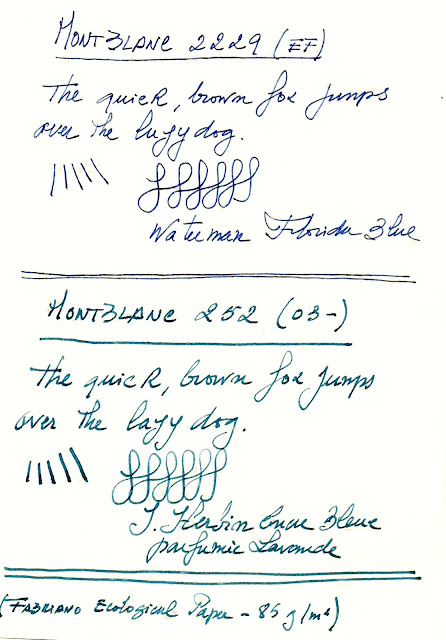 MONTBLANC 2229 (EF)
The quick, brown fox jumps
over the lazy dog.
Waterman Florida Blue
MONTBLANC 252 (03-)
The quick, brown fox jumps
over the lazy dog.
J. Herbin Encre Bleue
parfumée Lavande
(FABRIANO Ecological Paper - 85 g/m²)